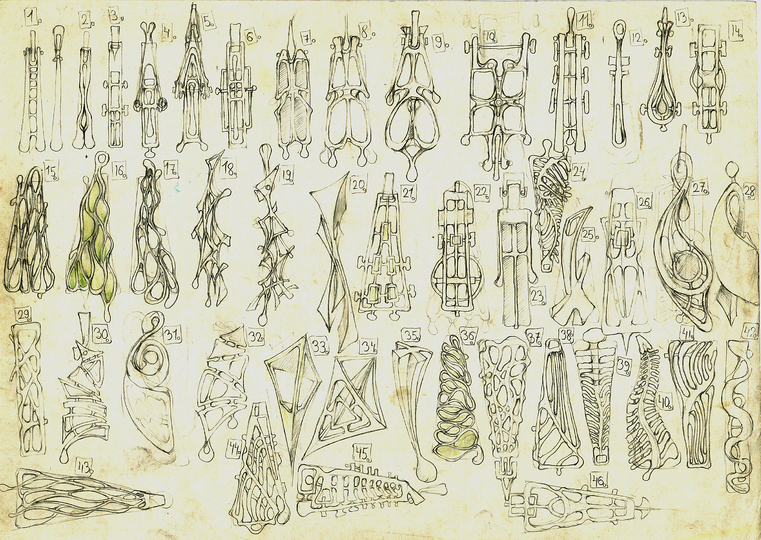 1. 2. 3. 4. 5. 6. 7. 8. 9. 10. 11. 12. 13. 14.
15. 16. 17. 18. 19. 20. 21. 22. 23. 24. 25. 26. 27. 28.
29. 30. 31. 32. 33. 34. 35. 36. 37. 38. 39. 40. 41. 42.
43. 44. 45. 46.